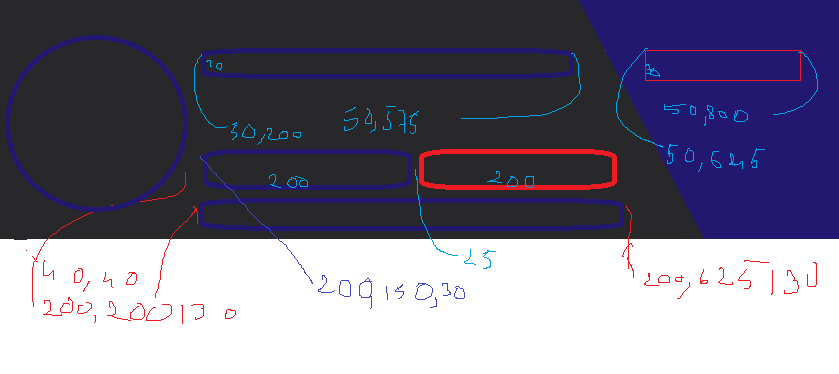 30
30
50,200
50,575
50,800
50,625
200
200
25
40,40
200,200|30
200,150,30
200,625|30